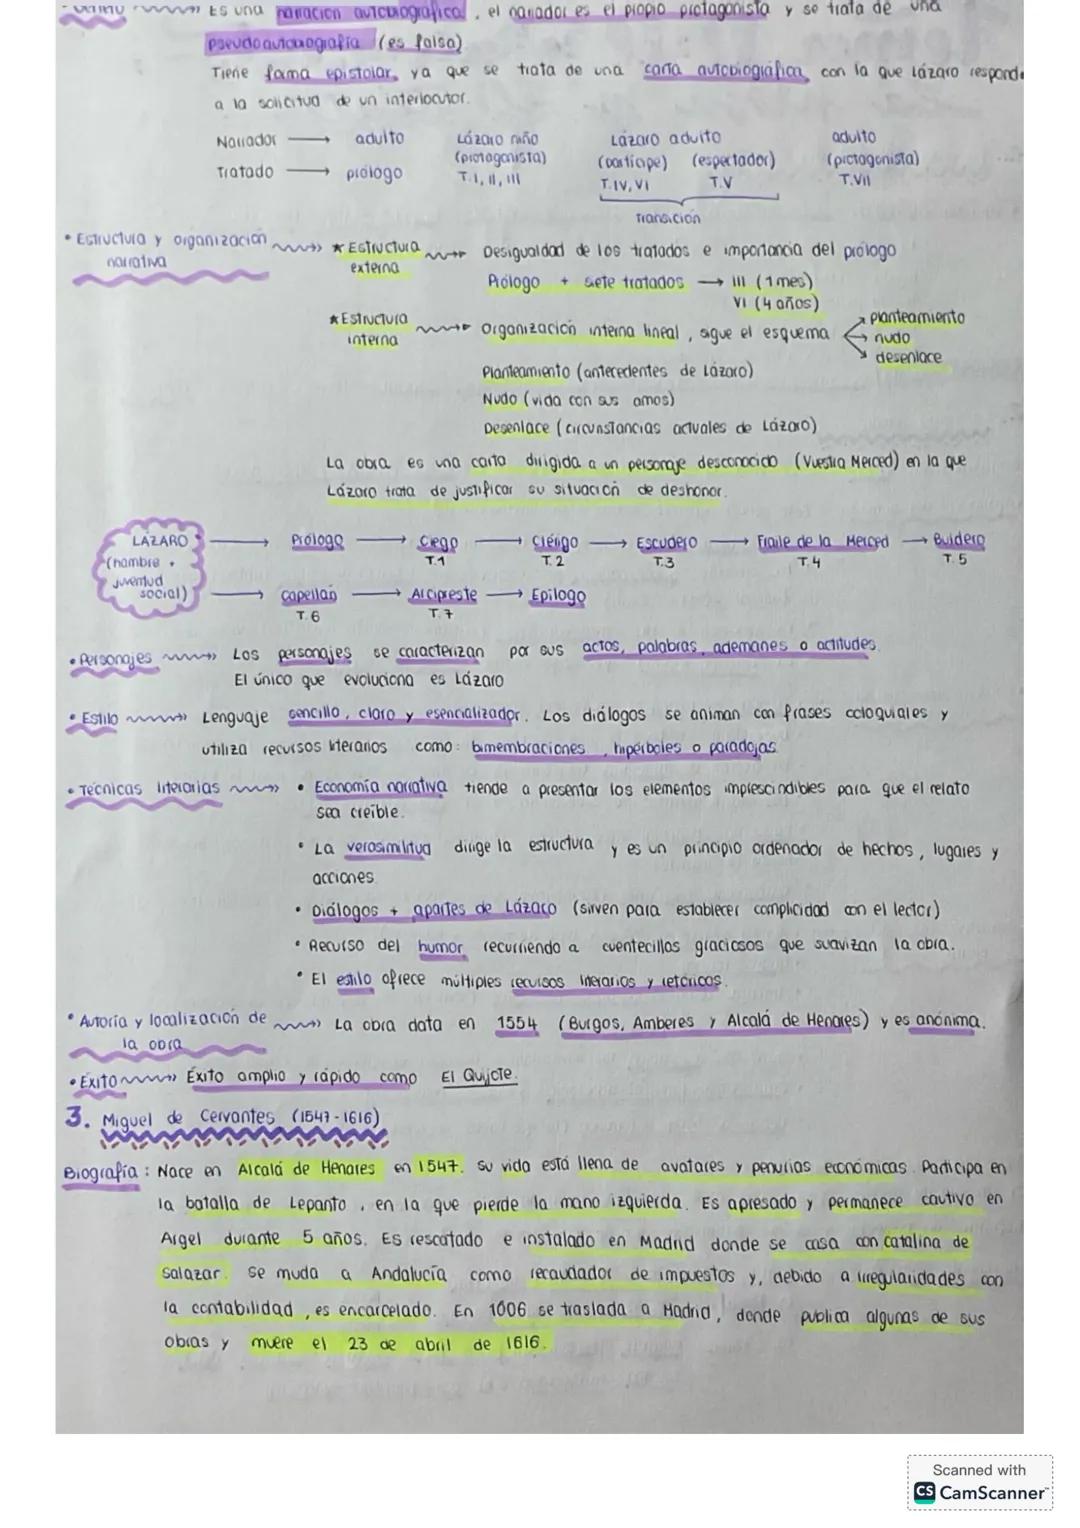 Es una narración autobiográfica, el narrador es el propio protagonista y se trata de una
pseudoautobiografía (es falsa)
Tiene forma epistolar, ya que se trata de una carta autobiográfica con la que Lázaro responde
a la solicitud de un interlocutor.
Narrador → adulto Lázaro niño (protagonista) Lázaro adulto (partícipe) (espectador) adulto (protagonista)
Tratado → prólogo T.I, II, III T.IV, VI T.V T.VII
Transición
• Estructura y organización narrativa
* Estructura externa Desigualdad de los tratados e importancia del prólogo
Prólogo + siete tratados → III (1 mes)
VI (4 años)
* Estructura interna Organización interna lineal, sigue el esquema planteamiento
nudo
desenlace
Planteamiento (antecedentes de Lázaro)
Nudo (vida con sus amos)
Desenlace (circunstancias actuales de Lázaro)
La obra es una carta dirigida a un personaje desconocido (Vuestra Merced) en la que
Lázaro trata de justificar su situación de deshonor.
LÁZARO (hambre + juventud social)
→ Prólogo → Ciego → Clérigo → Escudero → Fraile de la Merced → Buldero
T.1 T.2 T.3 T.4 T.5
→ Capellán → Arcipreste → Epílogo
T.6 T.7
• Personajes Los personajes se caracterizan por sus actos, palabras, ademanes o actitudes.
El único que evoluciona es Lázaro
• Estilo Lenguaje sencillo, claro y esencializador. Los diálogos se animan con frases coloquiales y
utiliza recursos literarios como: bimembraciones, hipérboles o paradojas
• Técnicas literarias • Economía narrativa tiende a presentar los elementos imprescindibles para que el relato
sea creíble.
• La verosimilitud dirige la estructura y es un principio ordenador de hechos, lugares y
acciones
• Diálogos + apartes de Lázaro (sirven para establecer complicidad con el lector)
• Recurso del humor, recurriendo a cuentecillos graciosos que suavizan la obra.
• El estilo ofrece múltiples recursos literarios y retóricos.
• Autoría y localización de la obra La obra data en 1554 (Burgos, Amberes y Alcalá de Henares) y es anónima.
• Éxito Éxito amplio y rápido como El Quijote.
3. Miguel de Cervantes (1547-1616)
Biografía: Nace en Alcalá de Henares en 1547. Su vida está llena de avatares y penurias económicas. Participa en
la batalla de Lepanto, en la que pierde la mano izquierda. Es apresado y permanece cautivo en
Argel durante 5 años. Es rescatado e instalado en Madrid donde se casa con Catalina de
Salazar. Se muda a Andalucía como recaudador de impuestos y, debido a irregularidades con
la contabilidad, es encarcelado. En 1606 se traslada a Madrid, donde publica algunas de sus
obras y muere el 23 de abril de 1616.
Scanned with
CS CamScanner